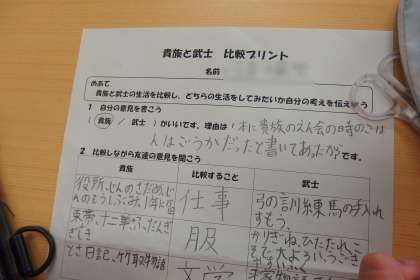 貴族と武士　比較プリント
名前
めあて
貴族と武士の生活を比較し、どちらの生活をしてみたいか自分の考えを伝えよう
1　自分の意見を書こう
（貴族　/　武士　）がいいです。理由は「本に貴族のえん会の時のごは
んはごうかだったと書いてあったから」です。
2　比較しながら友達の意見を聞こう
貴族　比較すること　武士
仕事
弓の訓練馬の手入れ
すもう、
束帯、十二単
服
ひたたれ
日記、竹取物語
文学